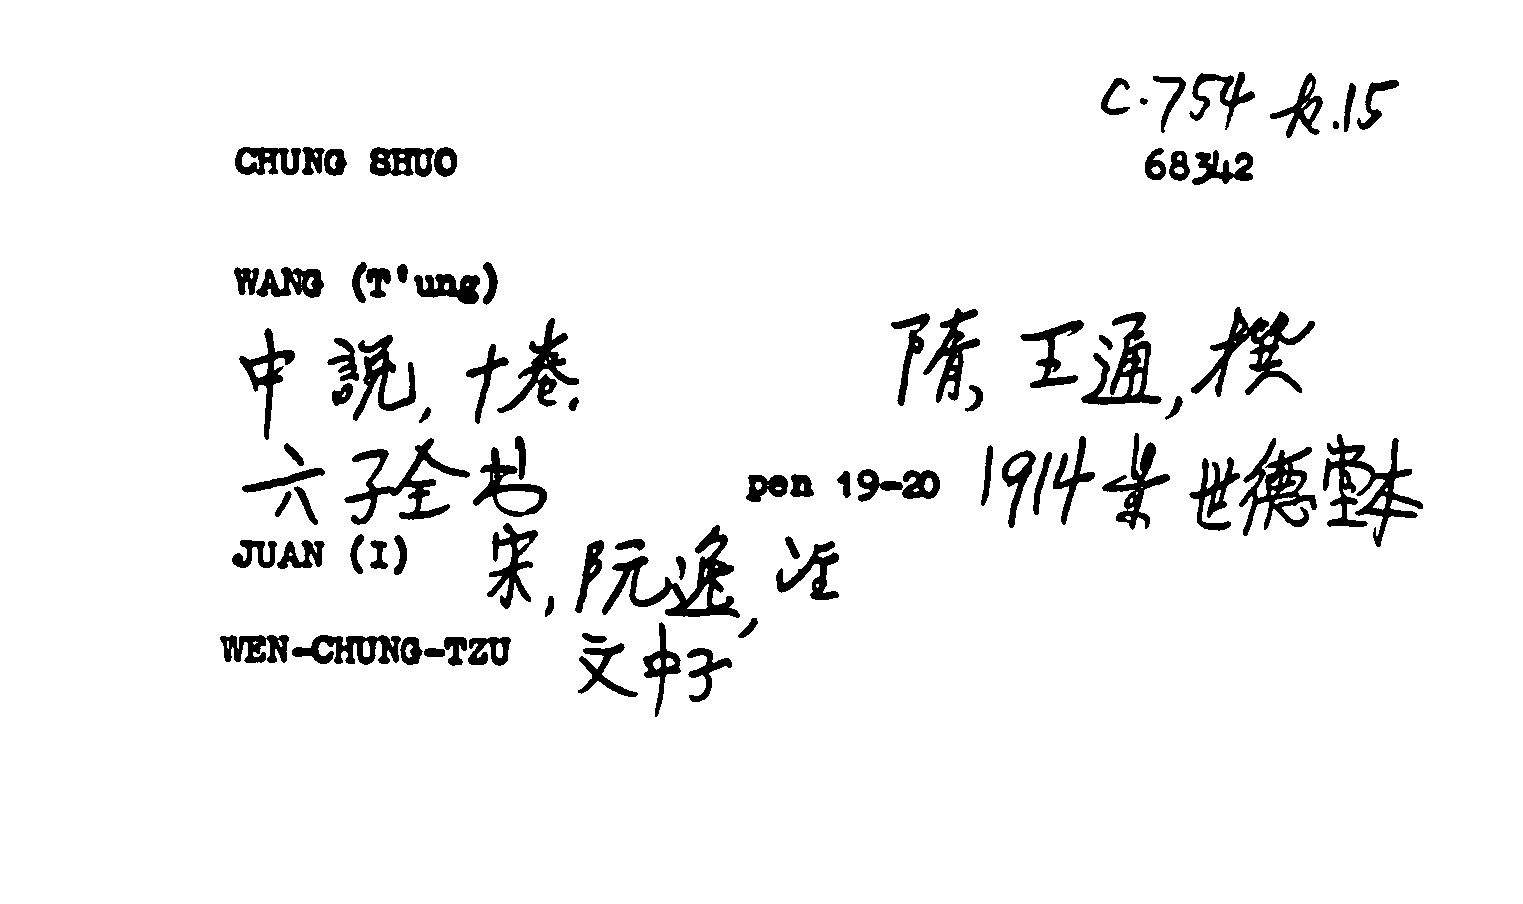 C.754 k.15
CHUNG SHUO 68342
WANG (T'ung)
中說, 十卷. 隋, 王通, 撰
六子全书 pen 19-20 1914 景 世德堂本
JUAN (I) 宋, 阮逸, 注
WEN-CHUNG-TZU 文中子